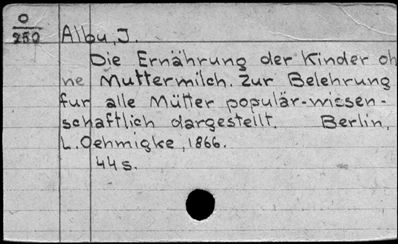 O
250
Albu, J.
Die Ernährung der Kinder oh
ne Muttermilch. Zur Belehrung
fur alle Mütter populär-wissen-
schaftlich dargestellt. Berlin,
L. Oehmigke, 1866.
44 s.